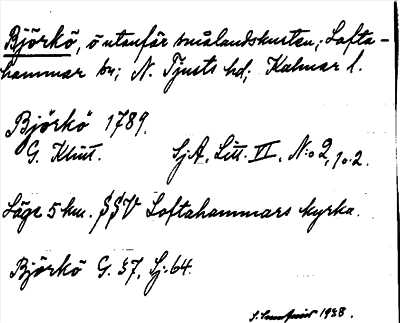 Björkö, ö utanför smålandskusten; Lofta-
hammar sn; N. Tjusts hd; Kalmar l.
Björkö 1789.
G. Klint. SjA, Litt. VI, N:o 2, 1 o. 2.
Läge 5 km. SSV Loftahammars kyrka.
Björkö G. 57, Sj. 64.
1928.